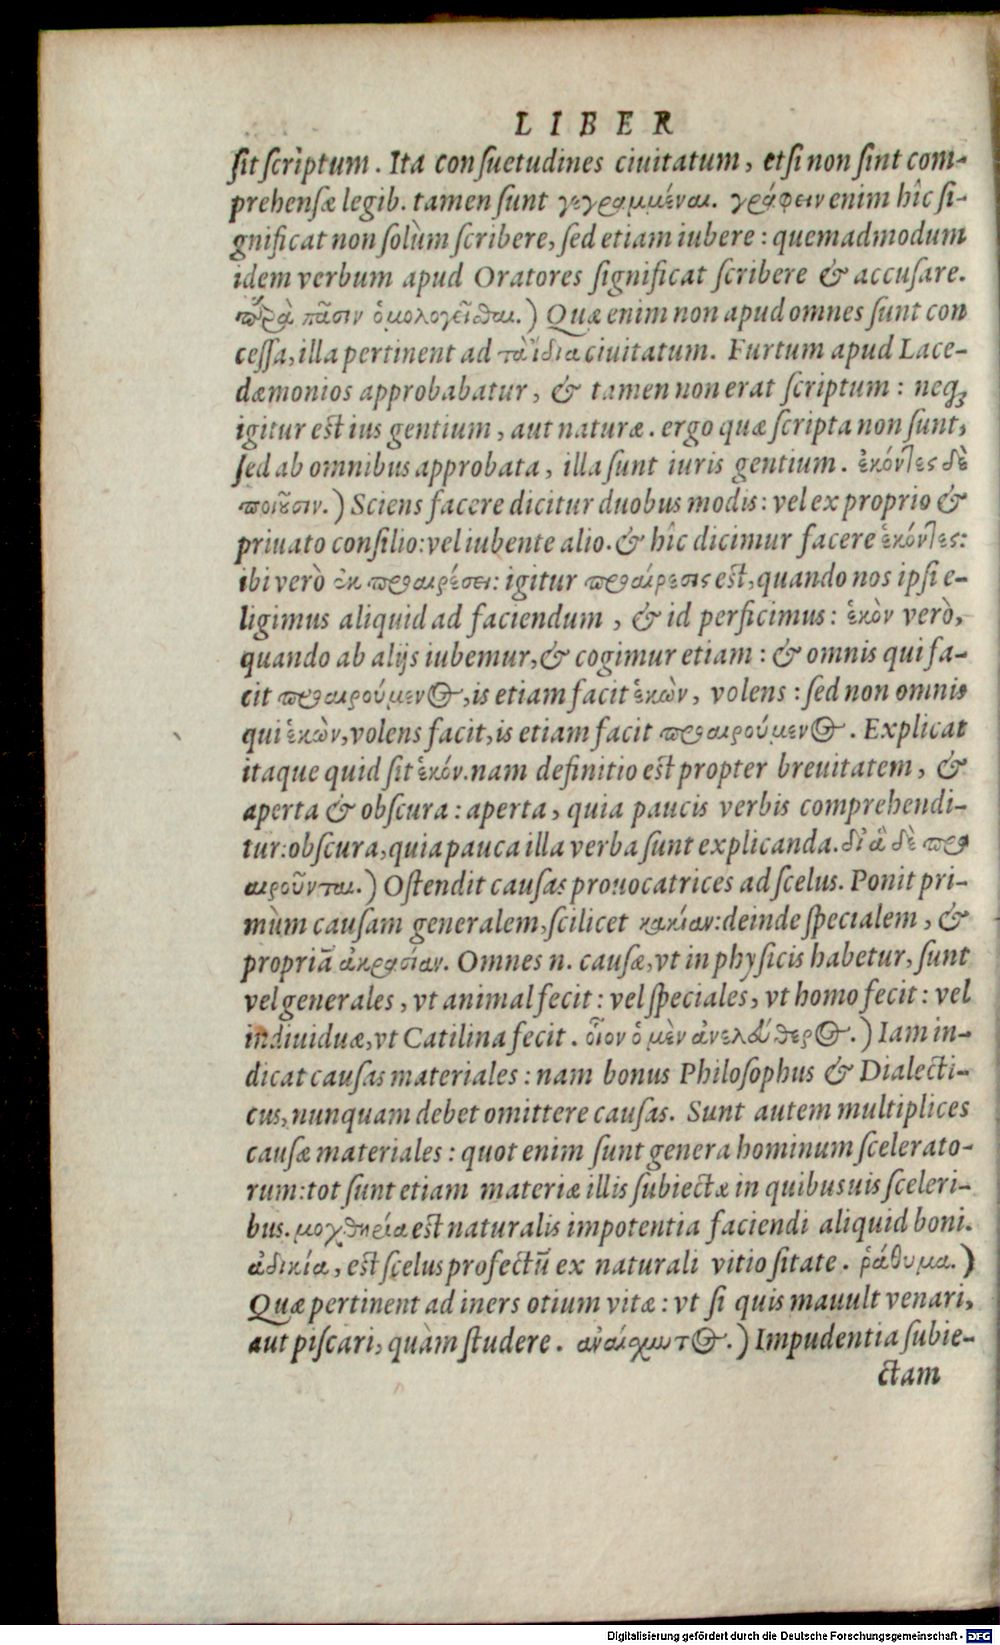 LIBER
sit scrìptum. Ita consuetudines ciuitatum, etsi non sint com-
prehensæ legib. tamen sunt γεγραμμέναι. γράφειν enim hîc si-
gnificat non solùm scribere, sed etiam iubere: quemadmodum
idem verbum apud Oratores significat scribere & accusare.
παρὰ πᾶσιν ὁμολογεῖσθαι.) Quæ enim non apud omnes sunt con
cessa, illa pertinent ad τὰ ἴδια ciuitatum. Furtum apud Lace-
dæmonios approbabatur, & tamen non erat scriptum: neq;
igitur est ius gentium, aut naturæ. ergo quæ scripta non sunt,
sed ab omnibus approbata, illa sunt iuris gentium. ἑκόντες δὲ
ποιοῦσιν.) Sciens facere dicitur duobus modis: vel ex proprio &
priuato consilio: vel iubente alio. & hîc dicimur facere ἑκόντες:
ibi verò ἐκ προαιρέσει: igitur προαίρεσις est, quando nos ipsi e-
ligimus aliquid ad faciendum, & id perficimus: ἑκὸν verò,
quando ab alijs iubemur, & cogimur etiam: & omnis qui fa-
cit προαιρούμενος, is etiam facit ἑκὼν, volens: sed non omnis
qui ἑκὼν, volens facit, is etiam facit προαιρούμενος. Explicat
itaque quid sit ἑκόν. nam definitio est propter breuitatem, &
aperta & obscura: aperta, quia paucis verbis comprehendi-
tur: obscura, quia pauca illa verba sunt explicanda. δι' ἃ δὲ προ
αιροῦνται.) Ostendit causas prouocatrices ad scelus. Ponit pri-
mùm causam generalem, scilicet κακίαν: deinde specialem, &
propriā ἀκρασίαν. Omnes n. causæ, vt in physicis habetur, sunt
vel generales, vt animal fecit: vel speciales, vt homo fecit: vel
indiuiduæ, vt Catilina fecit. οἷον ὁ μὲν ἀνελεύθερος.) Iam in-
dicat causas materiales: nam bonus Philosophus & Dialecti-
cus, nunquam debet omittere causas. Sunt autem multiplices
causæ materiales: quot enim sunt genera hominum scelerato-
rum: tot sunt etiam materiæ illis subiectæ in quibusuis sceleri-
bus. μοχθηρία est naturalis impotentia faciendi aliquid boni.
ἀδικία, est scelus profectū ex naturali vitiositate. ῥάθυμα.)
Quæ pertinent ad iners otium vitæ: vt si quis mauult venari,
aut piscari, quàm studere. ἀναίσχυντος.) Impudentia subie-
ctam
Digitalisierung gefördert durch die Deutsche Forschungsgemeinschaft - DFG